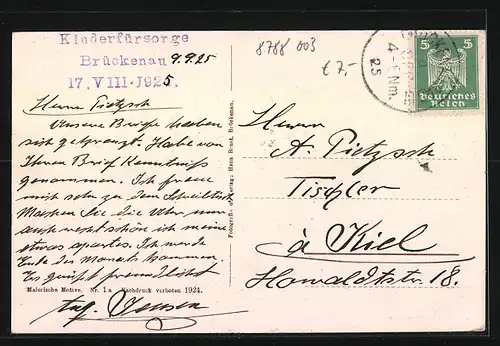 Kinderfürsorge
Brückenau 9.9.25
17.VIII.1925.
8788 003
€ 7,-
4-5 Nm.
25
5 5
Deutsches
Reich
Herrn Pietzsch
Unsere Briefe haben
sich gekreuzt. Habe von
Ihrem Brief Kenntniss
genommen. Ich freue
mich sehr zu dem Schreibtisch
Machen Sie die Uhr nur
auch recht schön ich meine
etwas apartes. Ich werde
Ende des Monats kommen.
Es grüsst freundlichst
Jensen
Malerische Motive. Nr. 1a Nachdruck verboten 1924.
Fotografie und Verlag: Hans Bruck, Brückenau.
Herrn
A. Pietzsch
Tischler
à Kiel
Howaldtstr 18.